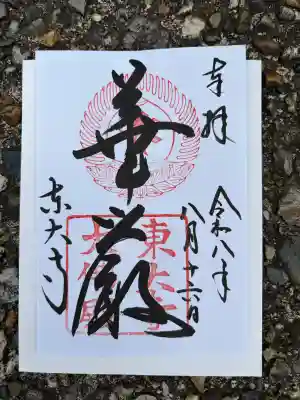 奉拝
令和八年
八月十六日
華厳
東大寺
東大寺
大仏殿